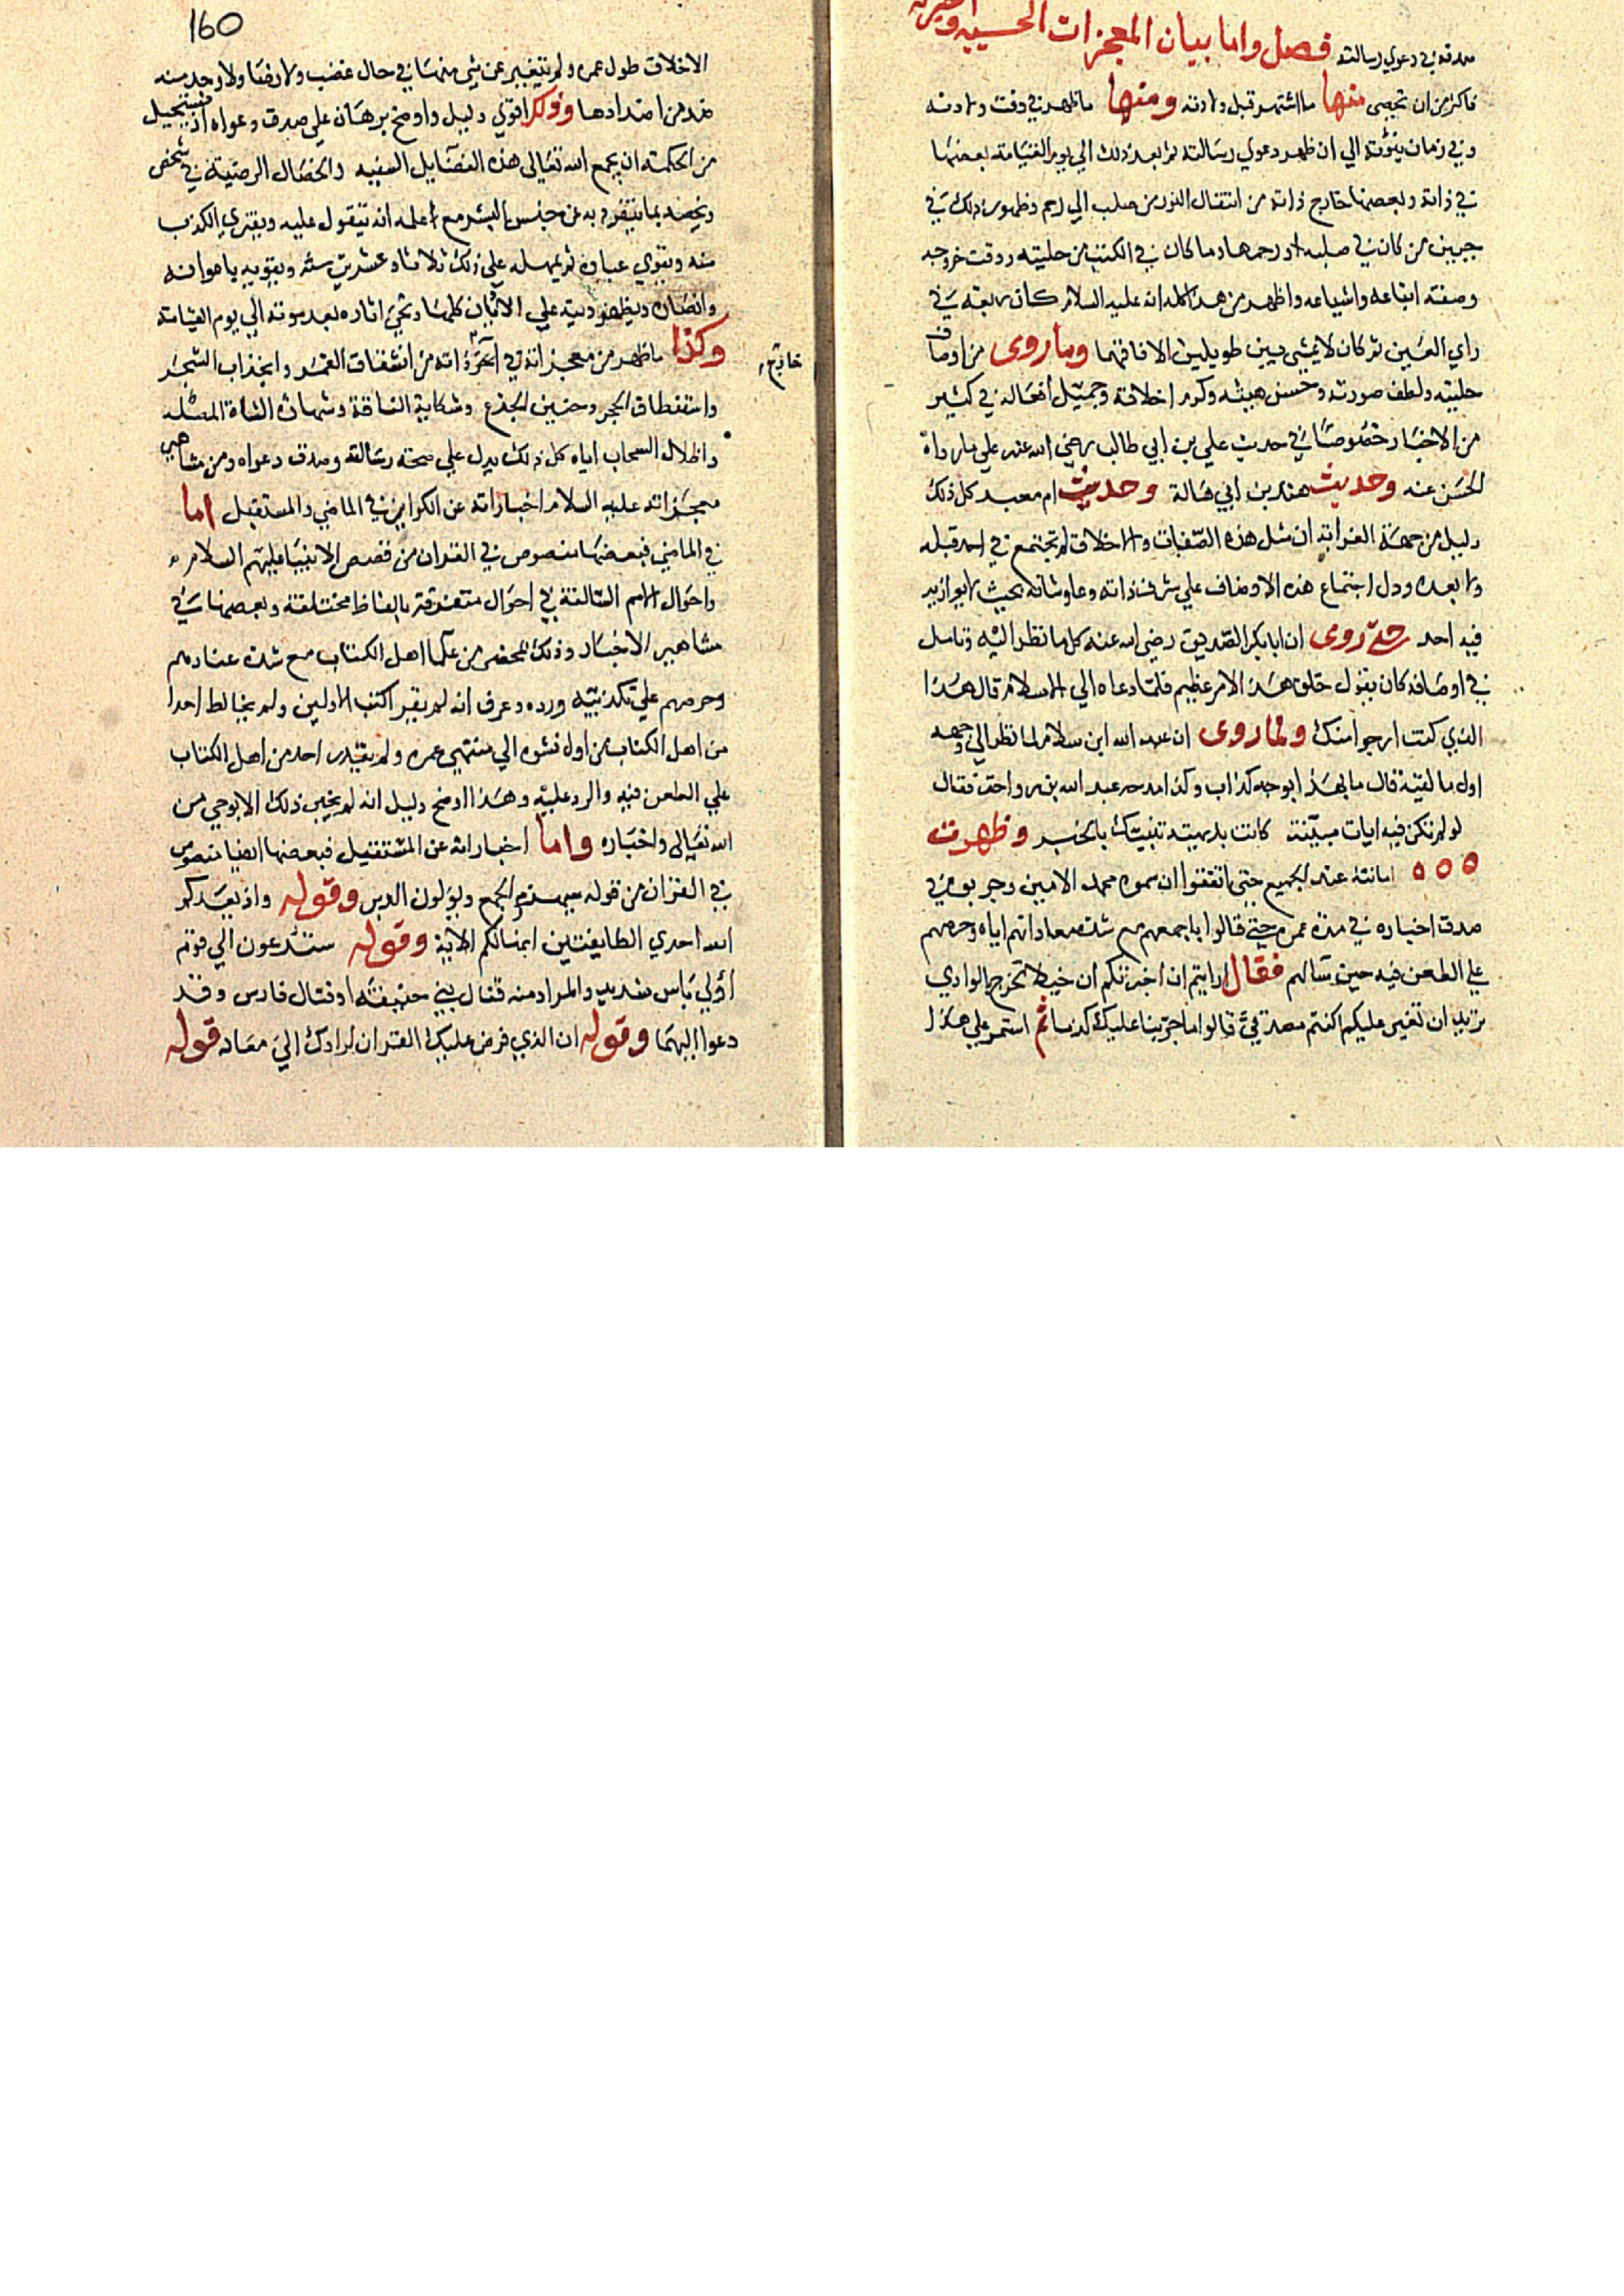 صدقه في دعوي رسالته فصل واما بيان المعجزات الحسيه
فاكثر من ان تحصى منها ما اشتهر قبل ولادته ومنها ما ظهر في وقت ولادته
وفي زمان الي ان ظهر دعوي رسالته ثم بعد ذلك الي يوم القيامة بعضها
في ذاته وبعضها خارج ذاته من انتقال النور من صلب الي رحم وظهور ذلك في
جبين من كان في صلبه او رحمها وما كان في الكتب من حليته ووقت خروجه
وصفة اتباعه واشياعه واظهر من هذا كله انه عليه السلام كان ربعة في
راي العين ثم كان لا يمشي بين طويلين الا فاقهما وما روى من اوصاف
حليته ولطف صورته وحسن هيئته وكرم اخلاقه وجميل افعاله في كثير
من الاخبار خصوصا في حديث علي بن ابي طالب رضي الله عنه علي ما رواه
الحسن عنه وحديث هند بن ابي هالة وحديث ام معبد كل ذلك
دليل من جهة ان مثل هذه الصفات والاخلاق لم تجتمع في احد قبله
ولا بعده ودل اجتماع هذه الاوصاف علي شرف ذاته وعلو شانه بحيث لا يوازيه
فيه احد حتى روى ان ابا بكر الصديق رضي الله عنه كلما نظر اليه وتامل
في اوصافه كان يقول خلق هذا لامر عظيم فلما دعاه الي الاسلام قال هذا
الذي كنت ارجو امنك ولما روى ان عبد الله ابن سلام لما نظر الي وجهه
اول ما لقيه قال ما هذا بوجه كذاب وكذا مدحه عبد الله بن رواحة فقال
لو لم تكن فيه ايات مبينة كانت بديهته تنبيك بالخبر وظهرت
امانته عند الجميع حتى اتفقوا ان سموه محمد الامين وجربوه في
صدق اخباره في مدة عمره حتى قالوا باجمعهم مع شدة معاداتهم اياه وحرصهم
علي الطعن فيه حين سالهم فقال ارايتم ان اخبرتكم ان خيلا تخرج الوادي
تريد ان تغير عليكم اكنتم مصدقي قالوا ما جربنا عليك كذبا ثم استمر علي هذا
160
الاخلاق طول عمره ولم يتغير عن شي منها في حال غضب ولا رضا ولا وجد منه
ضد من اضدادها وذلك اقوي دليل واوضح برهان علي صدق دعواه اذ يستحيل
من الحكمة ان يجمع الله تعالى هذه الفضايل السنيه والخصال الرضية في شخص
ويخصه بما ينفرد به عن جنس البشر مع علمه انه يتقول عليه ويفتري الكذب
منه ويقوي ثم يمهله علي ذلك ثلاثا وعشرين سنة ويقويه باعوانه
وانصاره ويظهر دينه علي الاديان كلها ويحي اثاره بعد موته الي يوم القيامة
وكذا ما ظهر من معجزاته في ذاته من انشقاق القمر وانجذاب الشجر
خارج
واستنطاق الحجر وحنين الجذع وشكاية الناقة وشهادة الشاة المصليه
واظلال السحاب اياه كل ذلك يدل علي صحة رسالته وصدق دعواه ومن مشاهير
معجزاته عليه السلام اخباراته عن الكواين في الماضي والمستقبل اما
في الماضي فبعضها منصوص في القران من قصص الانبيا عليهم السلام
واحوال الامم السالفة في احوال متفرقة بالفاظ مختلفة وبعضها في
مشاهير الاخبار وذلك بمحضر من علما اهل الكتاب مع شدة عنادهم
وحرصهم علي تكذيبه ورده وعرف انه لم يقرا كتب الاولين ولم يخالط احدا
من اهل الكتاب من اول نشوه الي منتهى عمره ولم يقدر احد من اهل الكتاب
علي الطعن فيه والرد عليه وهذا اوضح دليل انه لم يخبر ذلك الا بوحي من
الله تعالى واخباره واما اخباراته عن المستقبل فبعضها ايضا منصوص
في القران من قوله سيهزم الجمع ويولون الدبر وقوله واذ يعدكم
الله احدي الطايفتين انها لكم الاية وقوله ستدعون الي قوم
اولي باس شديد والمراد منه قتال بني حنيفة او قتال فارس وقد
دعوا اليهما وقوله ان الذي فرض عليك القران لرادك الي معاد قوله